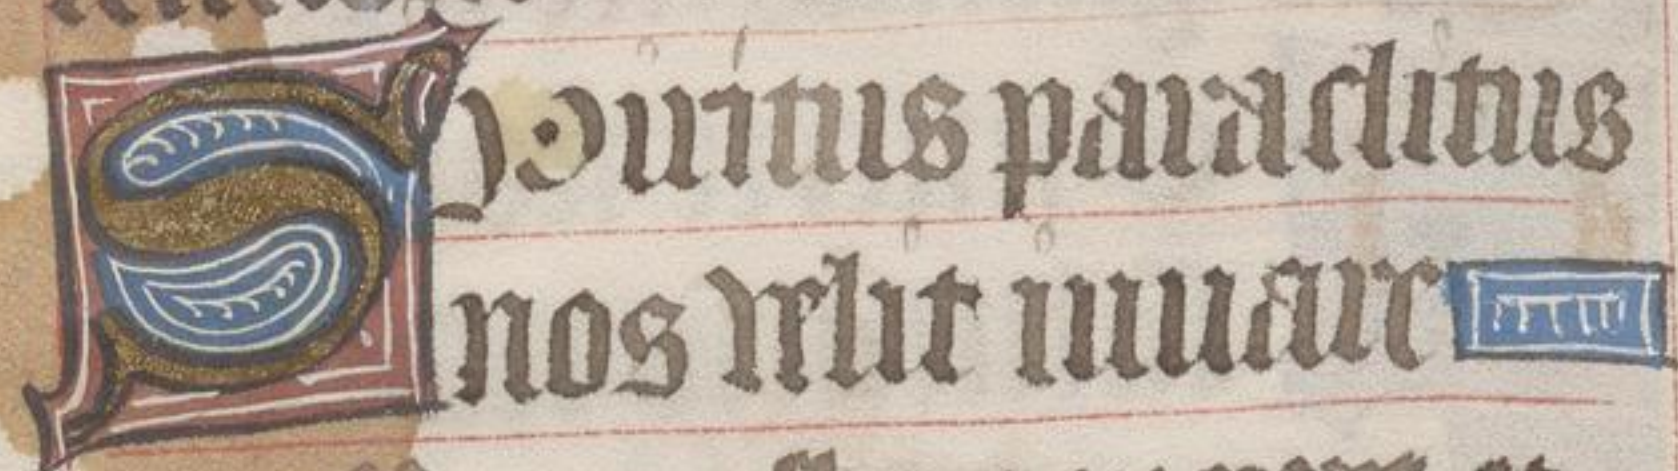 Spiritus paraclitus
nos velit iuuare